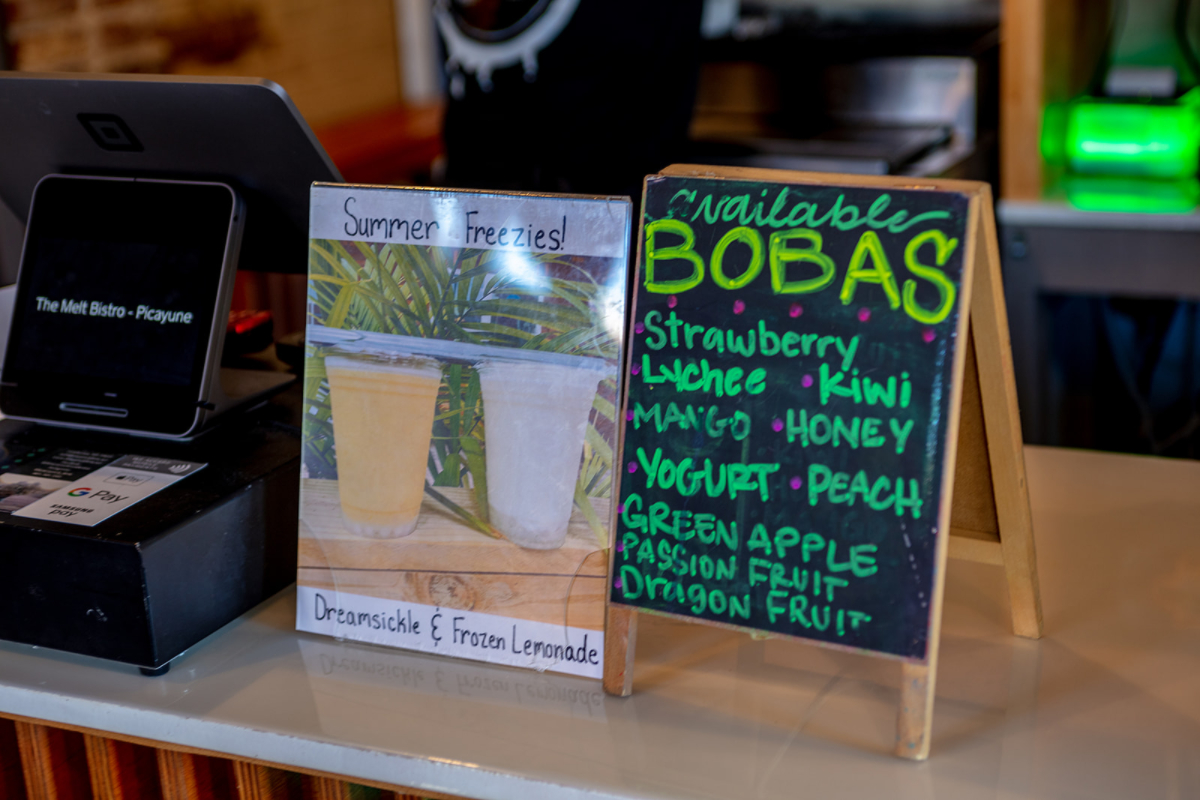 The Melt Bistro - Picayune
G Pay
SAMSUNG pay
Summer Freezies!
Dreamsickle & Frozen Lemonade
available
BOBAS
Strawberry
Lychee • Kiwi
• MANGO • HONEY
• YOGURT • PEACH
GREEN APPLE
PASSION FRUIT
Dragon FRUIT